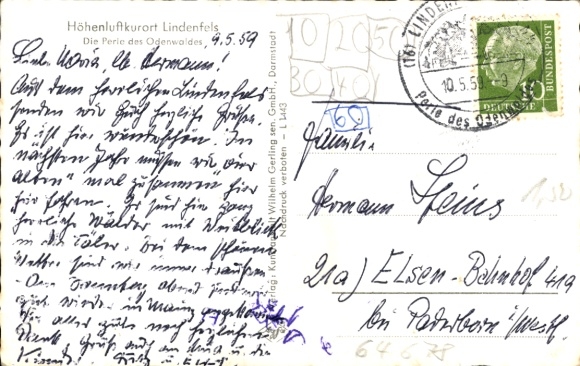 Höhenluftkurort Lindenfels
Die Perle des Odenwaldes,
9.5.59
Hermann!
Aus dem herrlichen Lindenfels
senden wir Euch herzliche Grüsse.
Es ist hier wunderschön. Im
nächsten Jahr müssen wir vier
"Alten" mal zusammen hier
her fahren. Es sind hier ganz
herrliche Wälder mit Weitblick
in die Täler. Bei dem schönen
Wetter sind wir immer draußen
Am Sonntag abend
wieder in Mainz
alles gute noch herzlichen
Dank. Gruß auch an und die
Fritz u.
Verlag: Kunstanstalt Wilhelm Gerling sen. GmbH., Darmstadt
Nachdruck verboten - L 1443
10 20 50
30 40
60
(16) LINDEN
10.5.59
Perle des Odenwaldes
10
DEUTSCHE
BUNDESPOST
Familie
Hermann Steins
21a) Elsen-Bahnhof 41a
bei Paderborn i/Westf.
1,50
64 678